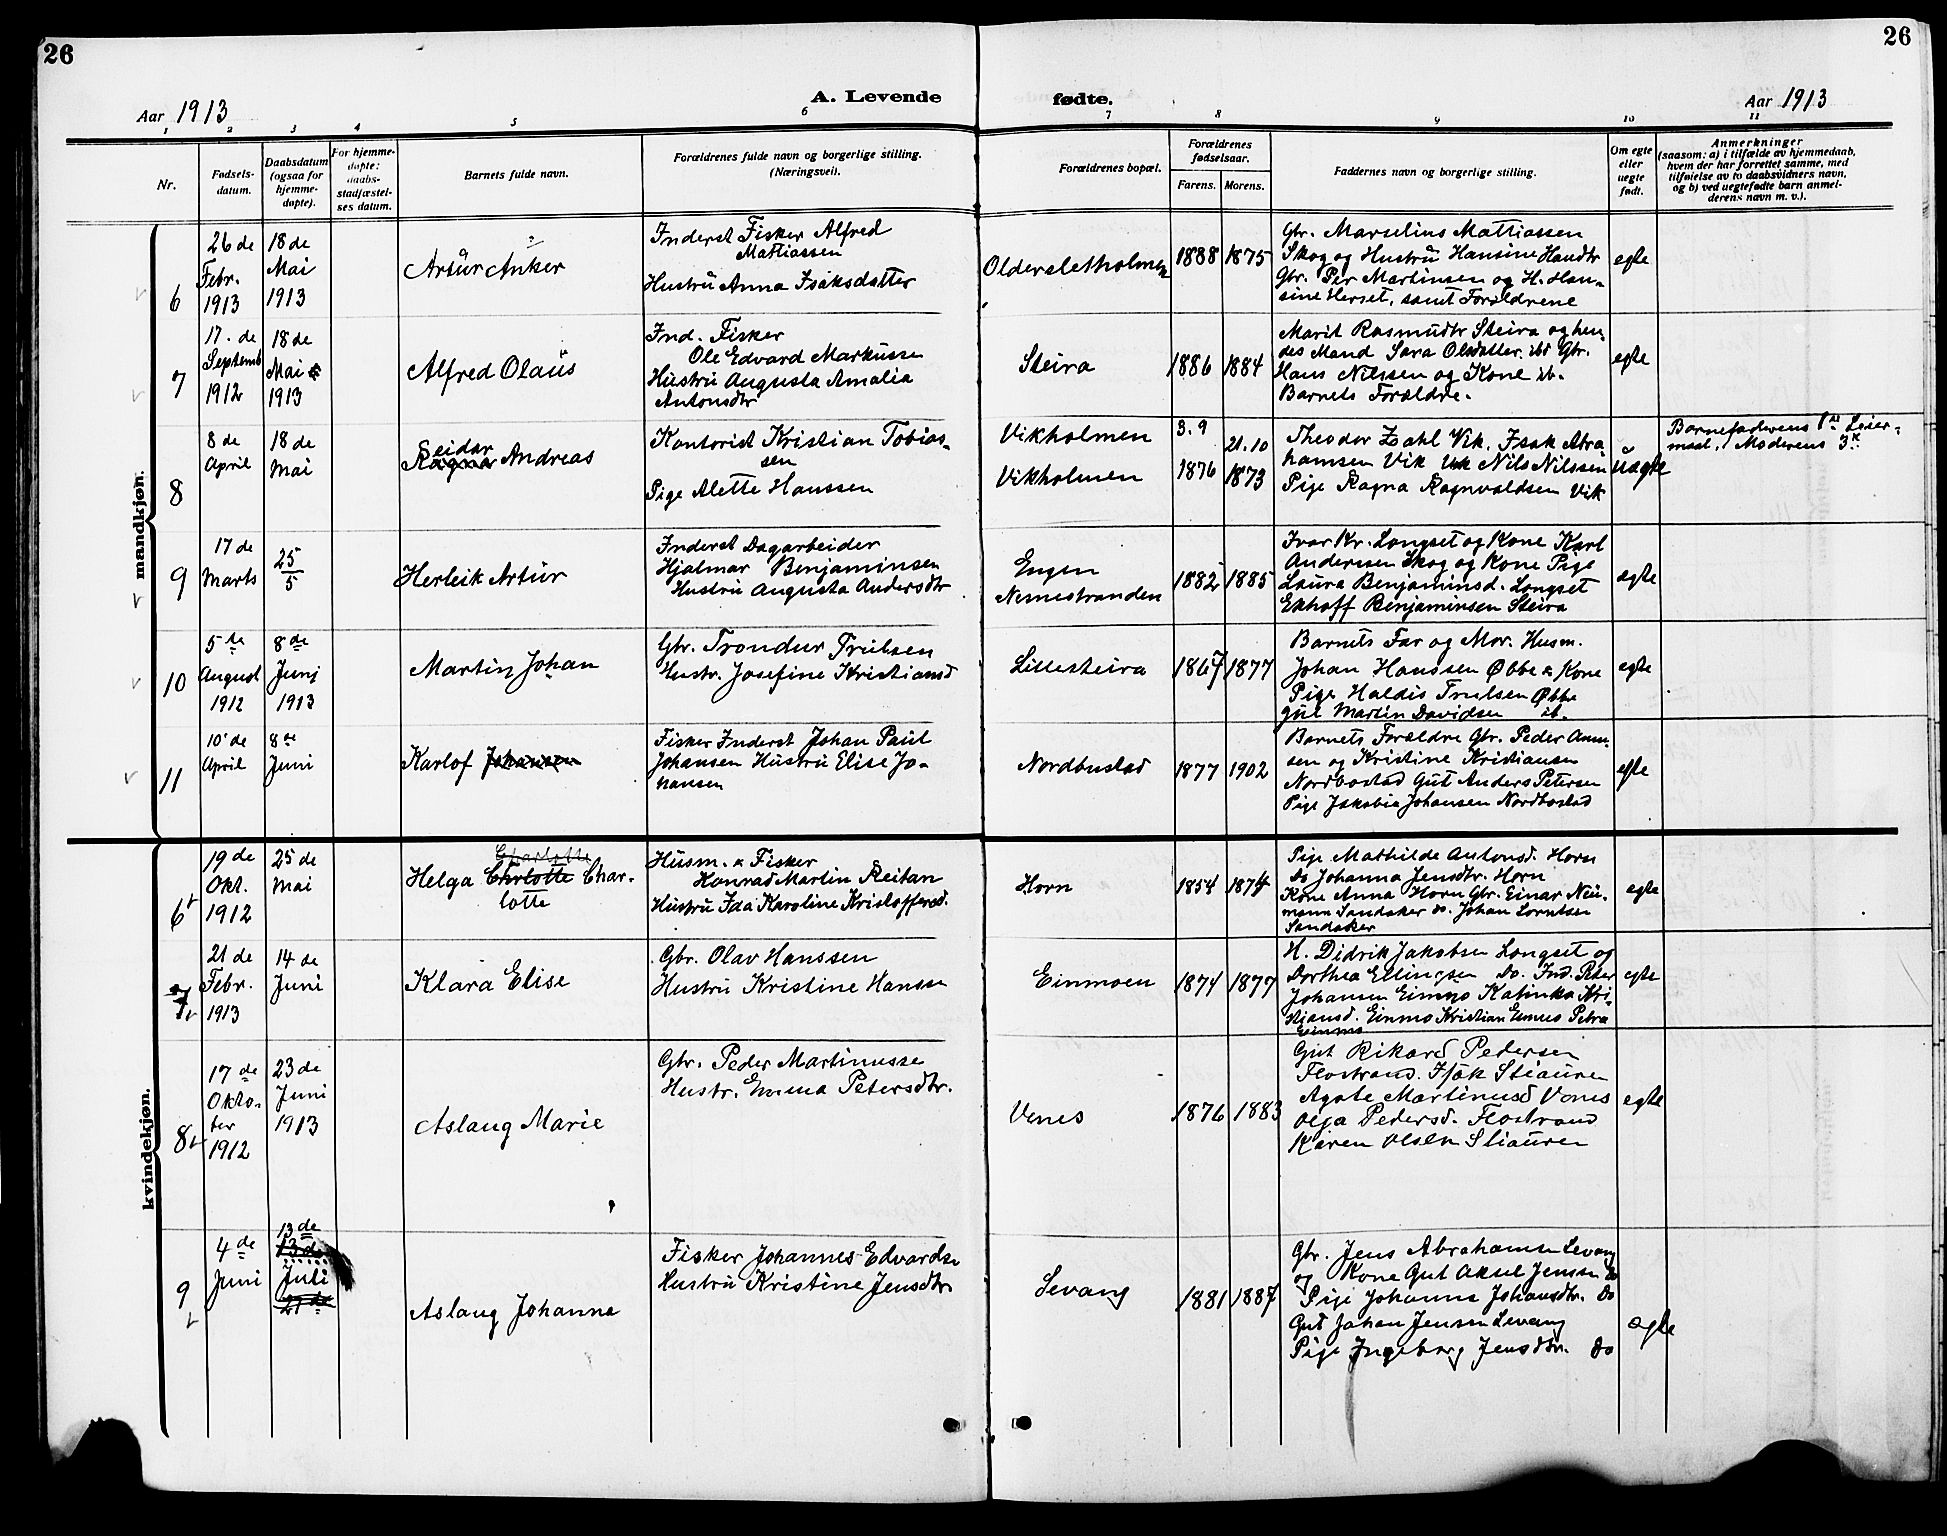 26
26
Aar 1913
A. Levende
fødte.
Aar 1913
1 2 3 4 5 6 7 8 9 10 11
Nr.
Fødsels-
datum.
Daabsdatum
(ogsaa for
hjemme-
døpte).
For hjemme-
døpte:
daabs-
stadfæstel-
ses datum.
Barnets fulde navn.
Forældrenes fulde navn og borgerlige stilling.
(Næringsvei).
Forældrenes bopæl.
Forældrenes
fødselsaar.
Farens. Morens.
Faddernes navn og borgerlige stilling.
Om egte
eller
uegte
født.
Anmerkninger
(saasom: a) i tilfælde av hjemmedaab,
hvem der har forrettet samme, med
tilføielse av to daabsvidners navn,
og b) ved uegtefødte barn anmel-
derens navn m. v.).
mandkjøn.
6
26 de
Febr.
1913
18 de
Mai
1913
Artur Anker
Inderst Fisker Alfred
Mathiassen
Hustru Anna Isaksdatter
Oldersletholmen
1888
1875
Gbr. Marselius Mattiassen
Skog og Hustru Hansine Handtr
Gbr. Per Martinsen og H. Han-
sine Herset, samt Forældrene
egte
7
17. de
Septemb
1912
18 de
Mai
1913
Alfred Olaus
Ind. Fisker
Ole Edvard Markusse
Hustru Augusta Amalia
Antonsdtr
Steira
1886
1884
Marit Rasmusdtr Steira og hen-
des Mand Sara Olsdatter ibd Gbr.
Hans Nilssen og Kone ib.
Barnets Forældre.
egte
8
8 de
April
18 de
Mai
Reidar
Ragnar Andreas
Kontorist Kristian Tobias-
sen
Pige Alette Hanssen
Vikholmen
Vikholmen
3.9
1876
21.10
1873
Theodor Zahl Vik, Isak Abra
hamsen Vik Nils Nilssen
Pige Ragna Ragnvaldsen Vik
uægte
Barnefaderens 1ste Leier-
maal, Moderens 3die
9
17 de
Marts
25
5
Herleik Artur
Inderst Dagarbeider
Hjalmar Benjaminsen
Hustru Augusta Andersdtr
Engen
Nemestranden
1882
1885
Ivar Kr. Longset og Kone Karl
Anderssen Skog og Kone Pige
Laura Benjaminsd. Longset
Ekhoff Benjaminsen Steira
egte
10
5te
August
1912
8de
Junj
1913
Martin Johan
Gbr. Trondur Trulsen
Hustr. Josefine Kristiansd
Lillesteira
1867
1877
Barnets Far og Mor. Husm.
Johan Hanssen Øbbe & Kone
Pige Haldis Trulsen Øbbe
Gut Martin Davidsen ib.
egte
11
10 de
April
8de
Juni
Karlof Johansen
Fisker Inderst Johan Paul
Johansen Hustru Elise Jo-
hansen
Nordbustad
1877
1902
Barnets Forældre Gbr. Peder Amm-
sen og Kristine Kristiansen
Nordbostad Gut Anders Petersen
Pige Jakobia Johansen Nordbostad
egte
kvindekjøn.
6
19 de
Okt.
1912
25 de
Mai
Charlotte
Helga Chrlotte Char-
lotte
Husm. & Fisker
Konrad Martin Reitan
Hustru Ida Karoline Kristoffersd.
Horn
1854
1874
Pige Mathilde Antonsd. Horn
do Johanna Jensdtr. Horn
Kone Anna Horn Gbr. Einar Neu-
mann Sandaker do. Johan Lorntsen
Sandaker
egte
7
21 de
Febr.
1913
14 de
Juni
Klara Elise
Gbr. Olav Hanssen
Hustru Kristine Hansse
Einmoen
1874
1877
H. Didrik Jakobsen Longset og
Dorthea Ellingsen do. Ind. Peter
Johansen Einmo Katinka Kri-
stiansd. Einmo Kristian Einmo Petra
Einmo
egte
8
17 de
Okto-
ber
1912
23 de
Juni
1913
Aslaug Marie
Gbr. Peder Martinusse
Hustr. Emma Petersdtr.
Venes
1876
1883
Gut Rikard Pedersen
Flostrand. Isak Stiauren
Agate Martinusd Venes
Olga Pedersd. Flostrand
Karen Olsen Stiauren
egte
9
4 de
Juni
13 de
13 de
Juli
27 de
Aslaug Johanna
Fisker Johannes Edvardse
Hustru Kristine Jensdtr.
Levang
1881
1887
Gbr. Jens Abrahamsen Levang
og Kone Gut Aksel Jensen do
Pige Johanna Johansdtr. do
Gut Johan Jensen Levang
Pige Ingeborg Jensdtr. do
ægte